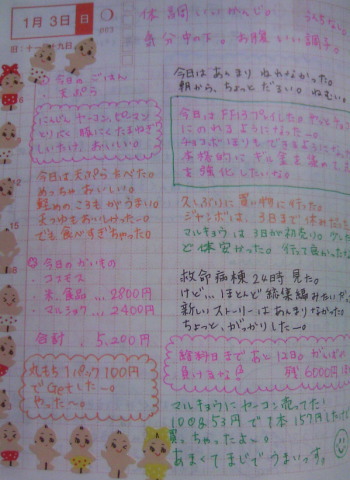 1月3日 日
003
旧：十一月十九日
体調いいかんじ。
気分中の下。お腹いい調子。
今日のごはん
・天ぷら
にんじん、ヤーコン、ピーマン
しいたけ、おいしい。
今日は天ぷら食べた。
めっちゃおいしい。
軽めのころもがうまい。
天つゆもおいしかった〜。
でも食べすぎちゃった。
今日のかいもの
・コスモス
・米、食品 … 2800円
・マルショク … 2400円
合計 5,200円
丸もち1パック100円
でGetした〜。
やった〜。
今日はあんまりねれなかった。
朝から、ちょっとだるい。ねむい。
今日はFF13プレイした。
にのれるようになった〜。
チョコボほりもできるようになった
を強化したいな。
久しぶりに買い物に行った。
ジャンボは、3日まで休み
マルキョウは3日が初売り。
ど体安かった。行って良かった
救命病棟24時見た。
けど… ほとんど総集編みたい
新しいストーリーはあんまりなかった
ちょっと、がっかりした〜。
給料日まであと12日。
残 6000円
マルキョウにヤーコン売ってた!
100g53円で1本157円
買っちゃったよ〜。
あまくてまじでうまいっす。